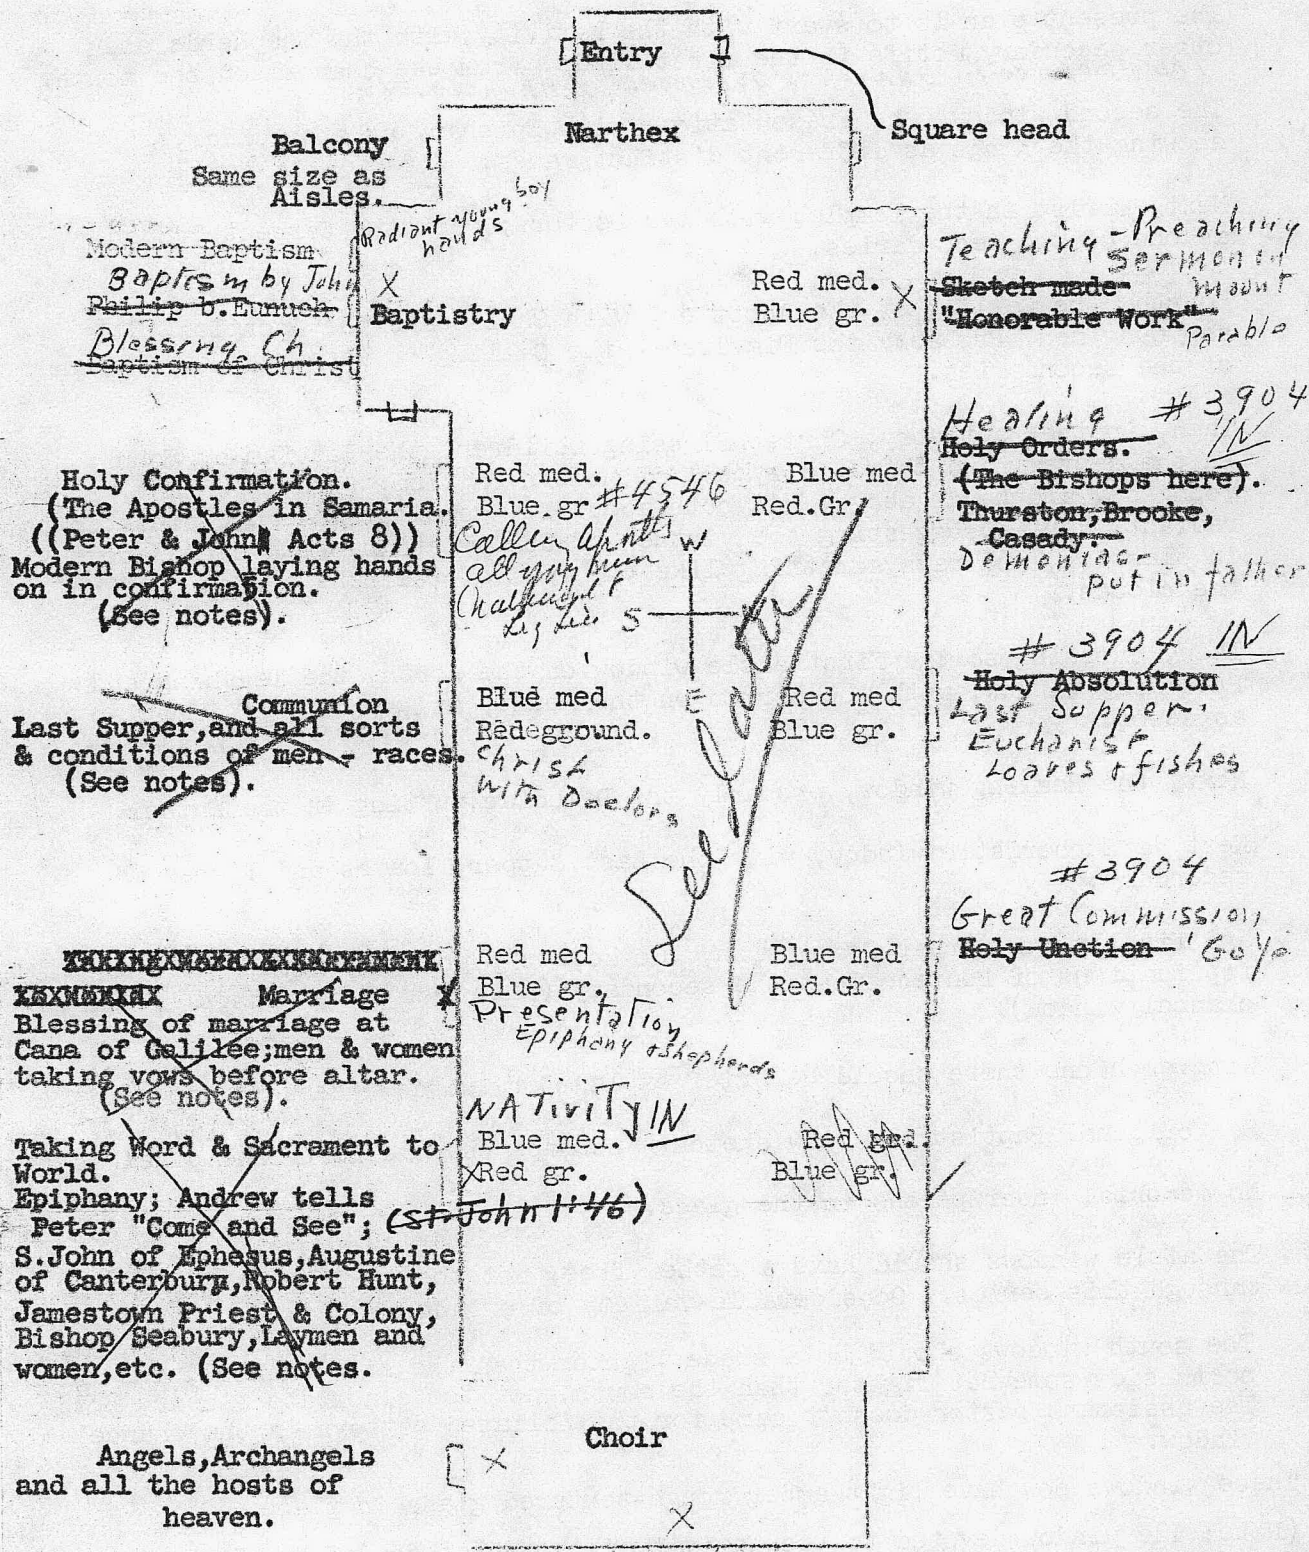 Entry
Narthex
Square head
Balcony
Same size as
Aisles.
Radiant young boy
hands
Modern Baptism
Baptism by John
Philip b.Eunuch
Blessing Ch.
Baptism of Christ
X
Baptistry
Red med.
Blue gr. X
Teaching - Preaching
Sermon on
Mount
Sketch made
"Honorable Work"
Parable
Holy Confirmation.
(The Apostles in Samaria.
((Peter & John Acts 8))
Modern Bishop laying hands
on in confirmation.
(See notes).
Red med.
Blue.gr #4546
all
W
S
E
Blue med
Red.Gr.
Healing #3904
IN
Holy Orders.
(The Bishops here).
Thurston,Brooke,
Casady.
Demoniac-
put in father
Communion
Last Supper,and all sorts
& conditions of men - races.
(See notes).
Blue med
Redeground.
Christ
With Doctors
See
Red med
Blue gr.
#3904 IN
Holy Absolution
Last Supper.
Eucharist
Loaves & fishes
Marriage X
Blessing of marriage at
Cana of Galilee;men & women
taking vows before altar.
(See notes).
Red med
Blue gr.
Presentation
Epiphany & Shepherds
Blue med
Red.Gr.
#3904
Great Commission
Holy Unction "Go Ye
Taking Word & Sacrament to
World.
Epiphany; Andrew tells
Peter "Come and See"; (St. John 1:46)
S.John of Ephesus,Augustine
of Canterbury,Robert Hunt,
Jamestown Priest & Colony,
Bishop Seabury,Laymen and
women,etc. (See notes.
NATiviTy IN
Blue med.
XRed gr.
Red grd.
Blue gr.
Choir
Angels,Archangels
and all the hosts of
heaven.
X
X